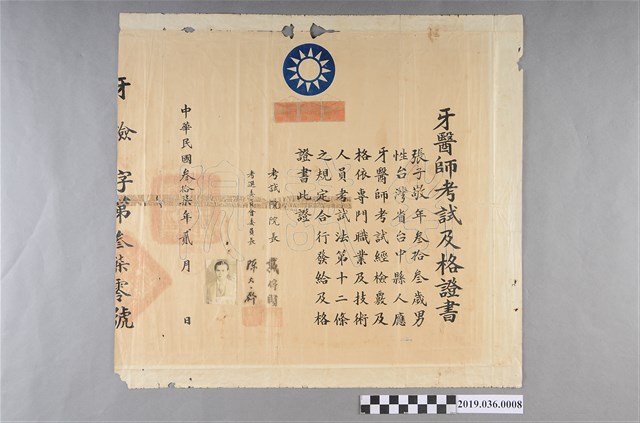 牙醫師考試及格證書
張子敬年叁拾叁歲男
性台灣省台中縣人應
牙醫師考試經檢覈及
格依專門職業及技術
人員考試法第十二條
之規定合行發給及格
證書此證
考試院院長
考選委員會委員長
中華民國叁拾柒年貳月 日
牙檢字第叁柒零號
2019.036.0008